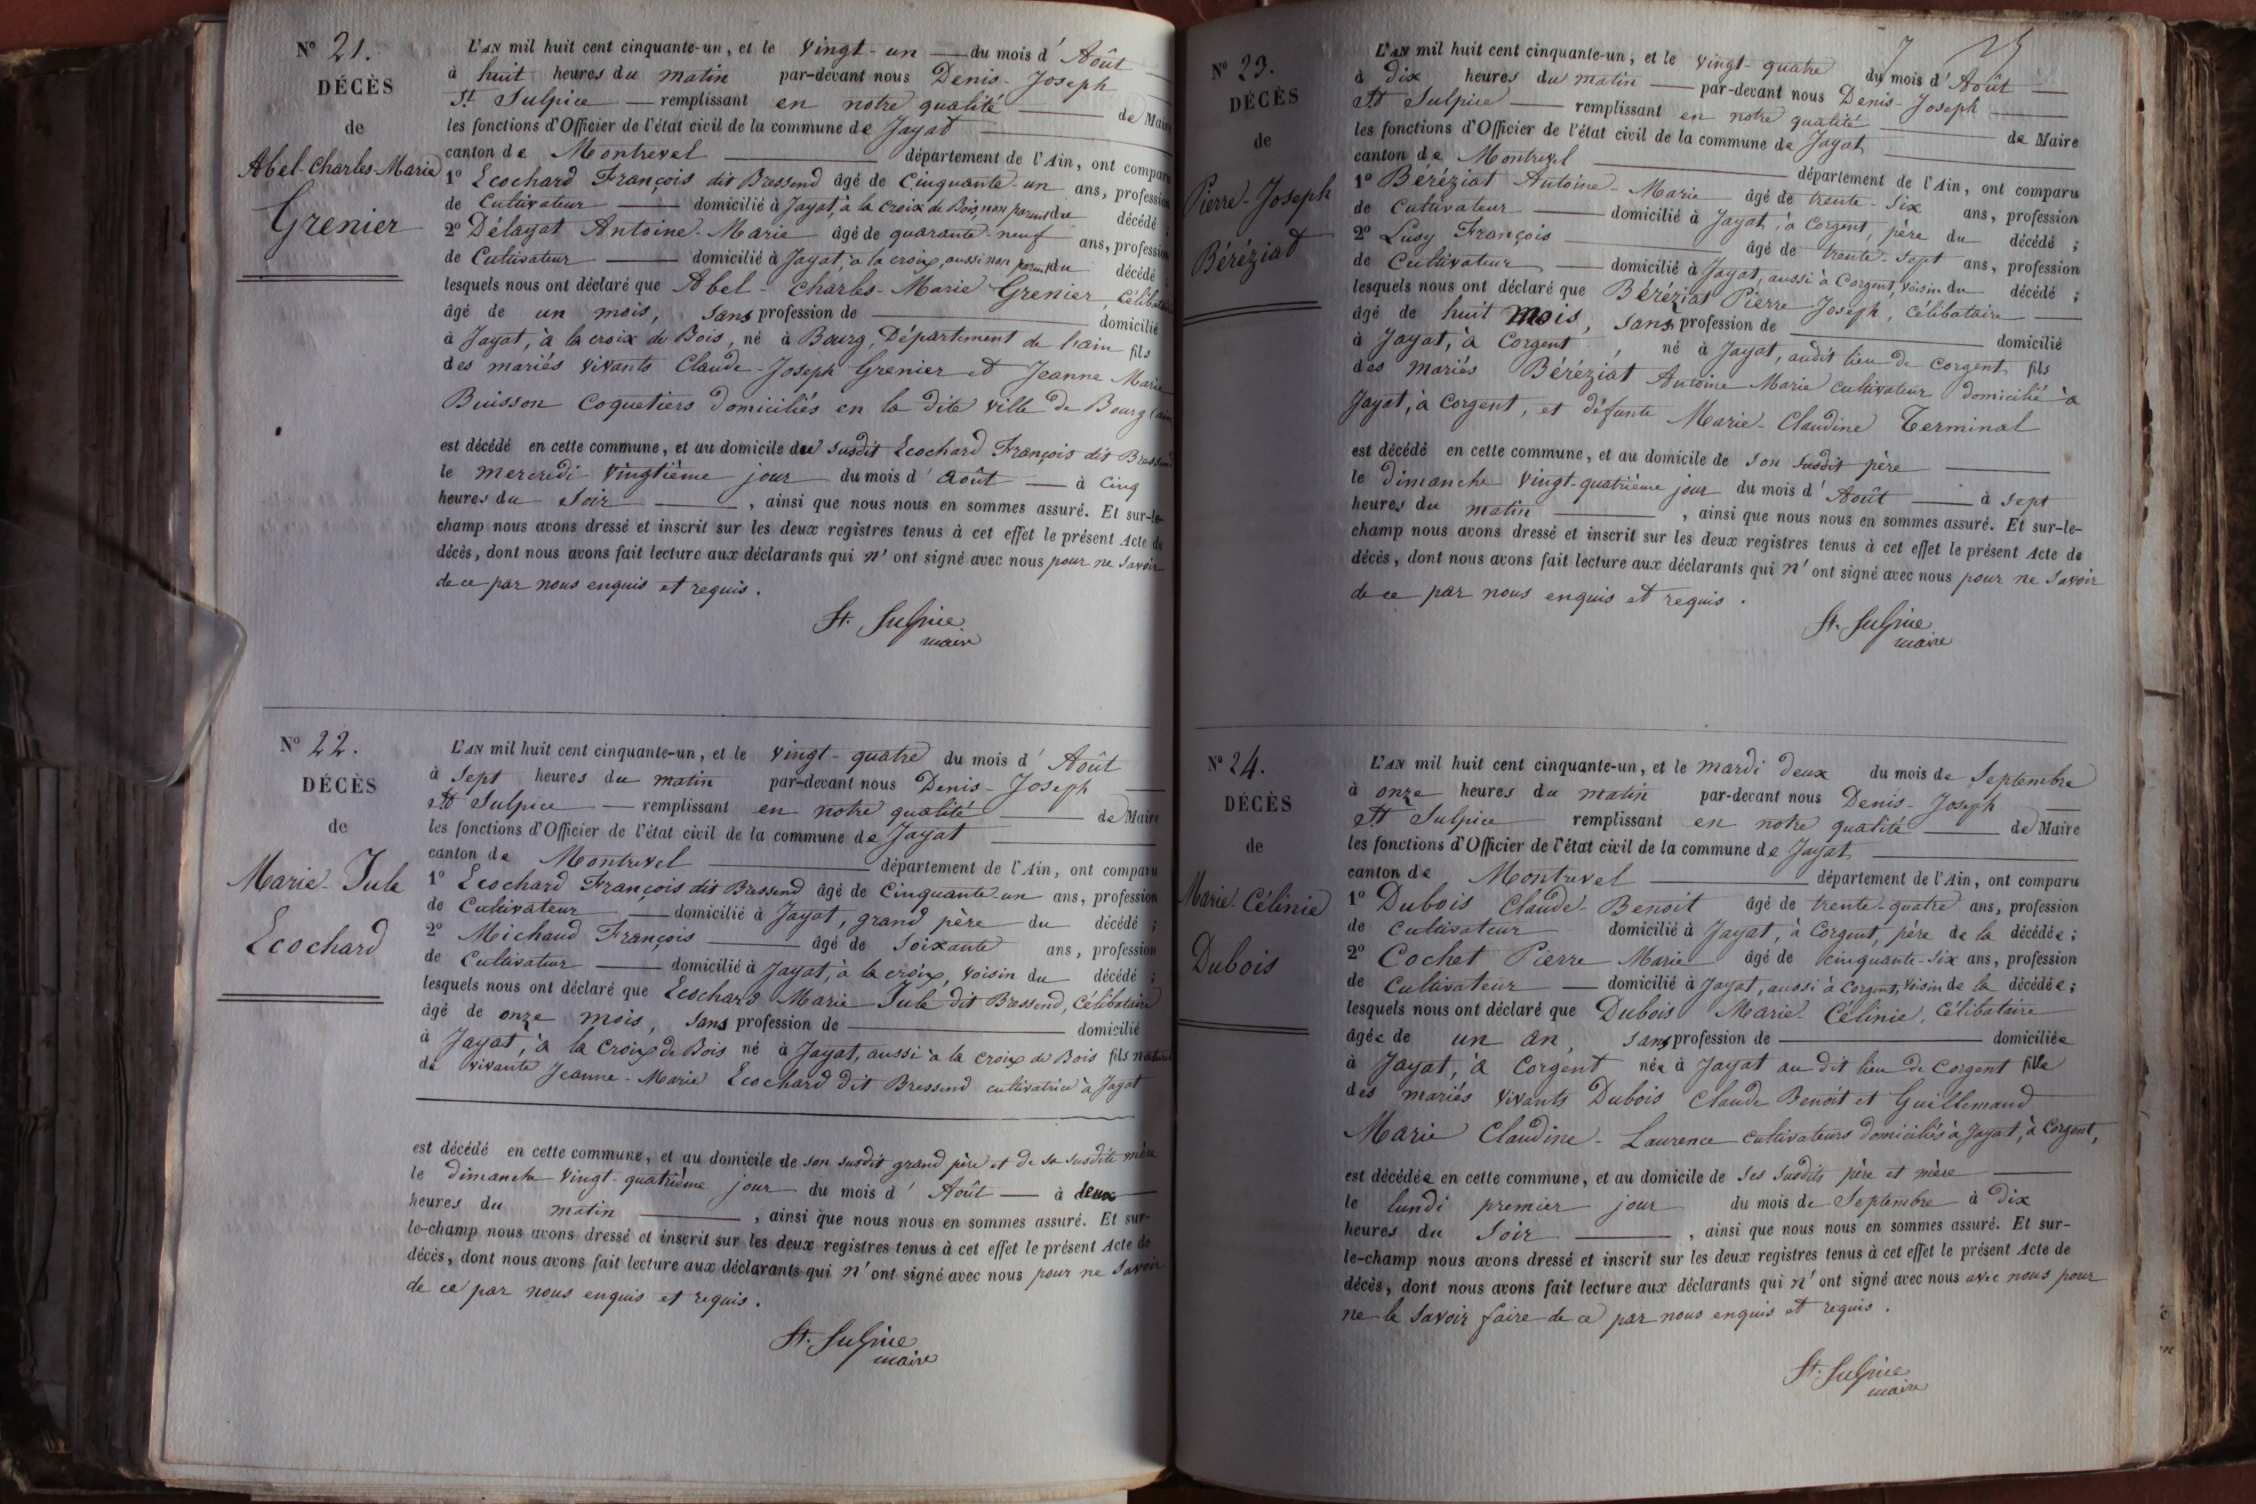 N° 21.
DÉCÈS
de
Abel-Charles-Marie
Grenier
L'AN mil huit cent cinquante-un, et le vingt-un du mois d'Août
à huit heures du matin par-devant nous Denis-Joseph
St Sulpice remplissant en notre qualité de Maire
les fonctions d'Officier de l'état civil de la commune de Jayat
canton de Montrevel département de l'Ain, ont comparu
1° Ecochard François dit Bressend âgé de Cinquante-un ans, profession
de Cultivateur domicilié à Jayat, à la croix de Bois, non parent du décédé ;
2° Délayat Antoine-Marie âgé de quarante-neuf ans, profession
de Cultivateur domicilié à Jayat, à la croix, aussi non parent du décédé ;
lesquels nous ont déclaré que Abel-Charles-Marie Grenier, Célibataire
âgé de un mois, sans profession de domicilié
à Jayat, à la croix de Bois, né à Bourg, Département de l'ain fils
des mariés vivants Claude-Joseph Grenier et Jeanne Marie
Buisson Coquetiers domiciliés en la dite ville de Bourg (ain)
est décédé en cette commune, et au domicile du susdit Ecochard François dit Bressend
le mercredi vingtième jour du mois d'août à cinq
heures du soir , ainsi que nous nous en sommes assuré. Et sur-le-
champ nous avons dressé et inscrit sur les deux registres tenus à cet effet le présent Acte de
décès, dont nous avons fait lecture aux déclarants qui n'ont signé avec nous pour ne savoir
de ce par nous enquis et requis.
St. Sulpice
maire
N° 22.
DÉCÈS
de
Marie-Jule
Ecochard
L'AN mil huit cent cinquante-un, et le vingt-quatre du mois d'Août
à sept heures du matin par-devant nous Denis-Joseph
St Sulpice remplissant en notre qualité de Maire
les fonctions d'Officier de l'état civil de la commune de Jayat
canton de Montrevel département de l'Ain, ont comparu
1° Ecochard François dit Bressend âgé de Cinquante-un ans, profession
de Cultivateur domicilié à Jayat, grand père du décédé ;
2° Michaud François âgé de soixante ans, profession
de Cultivateur domicilié à Jayat, à la croix, voisin du décédé ;
lesquels nous ont déclaré que Ecochard Marie-Jule dit Bressend, Célibataire
âgé de onze mois, sans profession de domicilié
à Jayat, à la Croix de Bois né à Jayat, aussi à la croix de Bois fils naturel
de vivante Jeanne-Marie Ecochard dit Bressend cultivatrice à Jayat
est décédé en cette commune, et au domicile de son susdit grand père et de sa susdite mère
le dimanche vingt-quatrième jour du mois d'Août à deux
heures du matin , ainsi que nous nous en sommes assuré. Et sur-
le-champ nous avons dressé et inscrit sur les deux registres tenus à cet effet le présent Acte de
décès, dont nous avons fait lecture aux déclarants qui n'ont signé avec nous pour ne savoir
de ce par nous enquis et requis.
St. Sulpice
maire
N° 23.
DÉCÈS
de
Pierre-Joseph
Béréziat
L'AN mil huit cent cinquante-un, et le vingt-quatre du mois d'Août
à dix heures du matin par-devant nous Denis-Joseph
St Sulpice remplissant en notre qualité de Maire
les fonctions d'Officier de l'état civil de la commune de Jayat
canton de Montrevel département de l'Ain, ont comparu
1° Béréziat Antoine-Marie âgé de trente-six ans, profession
de Cultivateur domicilié à Jayat, à Corgent, père du décédé ;
2° Lusy François âgé de trente-sept ans, profession
de Cultivateur domicilié à Jayat, aussi à Corgent, voisin du décédé ;
lesquels nous ont déclaré que Béréziat Pierre Joseph, Célibataire
âgé de huit mois, sans profession de domicilié
à Jayat, à Corgent, né à Jayat, audit lieu de Corgent fils
des mariés Béréziat Antoine Marie cultivateur domicilié à
Jayat, à Corgent, et défunte Marie-Claudine Terminal
est décédé en cette commune, et au domicile de son susdit père
le dimanche vingt-quatrième jour du mois d'Août à sept
heures du matin , ainsi que nous nous en sommes assuré. Et sur-le-
champ nous avons dressé et inscrit sur les deux registres tenus à cet effet le présent Acte de
décès, dont nous avons fait lecture aux déclarants qui n'ont signé avec nous pour ne savoir
de ce par nous enquis et requis.
St. Sulpice
maire
N° 24.
DÉCÈS
de
Marie-Célinie
Dubois
L'AN mil huit cent cinquante-un, et le mardi deux du mois de Septembre
à onze heures du matin par-devant nous Denis-Joseph
St Sulpice remplissant en notre qualité de Maire
les fonctions d'Officier de l'état civil de la commune de Jayat
canton de Montrevel département de l'Ain, ont comparu
1° Dubois Claude-Benoit âgé de trente-quatre ans, profession
de Cultivateur domicilié à Jayat, à Corgent, père de la décédée ;
2° Cochet Pierre Marie âgé de cinquante-six ans, profession
de Cultivateur domicilié à Jayat, aussi à Corgent, voisin de la décédée ;
lesquels nous ont déclaré que Dubois Marie Célinie, célibataire
âgée de un an, sans profession de domiciliée
à Jayat, à Corgent née à Jayat au dit lieu de Corgent fille
des mariés vivants Dubois Claude Benoit et Guillemaud
Marie Claudine-Laurence cultivateurs domiciliés à Jayat, à Corgent,
est décédée en cette commune, et au domicile de ses susdits père et mère
le lundi premier jour du mois de Septembre à dix
heures du soir , ainsi que nous nous en sommes assuré. Et sur-
le-champ nous avons dressé et inscrit sur les deux registres tenus à cet effet le présent Acte de
décès, dont nous avons fait lecture aux déclarants qui n'ont signé avec nous avec nous pour
ne le savoir faire de ce par nous enquis et requis.
St. Sulpice
maire